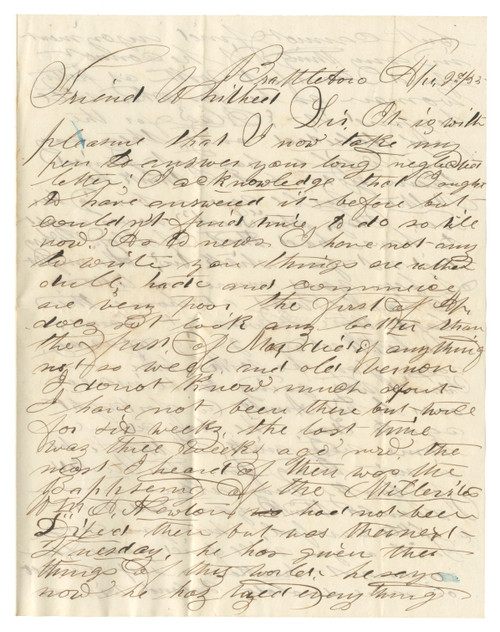 Brattleboro Apr. 2nd/55
Friend Whithed
Sir. It is with
pleasure that I now take my
pen to answer your long neglected
letter; I acknowledge that I ought
to have answered it before but
could not find time to do so till
now. As to news I have not any
to write you things are rather
dull, trade and commerce
are very poor, the first of Apr.
does not look any better than
the first of Mar. did if anything
not so well. and old Vernon
I do not know much about
I have not been there but twice
for six weeks. the last time
was three weeks ago and the
most I heard of then was the
Baptising of the Millerites
Newton had not been
then but was the next
Tuesday. he has given the
things of this world. he says
now he has tryed everything